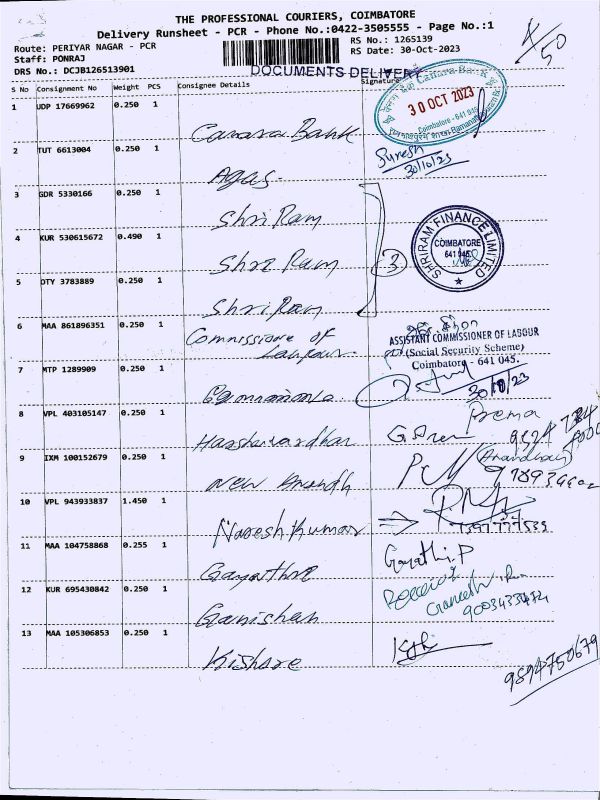 THE PROFESSIONAL COURIERS, COIMBATORE
Delivery Runsheet - PCR - Phone No.:0422-3505555 - Page No.:1
Route: PERIYAR NAGAR - PCR
Staff: PONRAJ
DRS No.: DCJB126513901
RS No.: 1265139
RS Date: 30-Oct-2023
4/50
DOCUMENTS DELIVERY
S No Consignment No Weight PCS Consignee Details Signature
Canara Bank
30 OCT 2023
Coimbatore - 641
1 UDP 17669962 0.250 1 Canara Bank
2 TUT 6613004 0.250 1 Agas Suresh
30/10/23
3 GDR 5330166 0.250 1 Shri Ram
4 KUR 530615672 0.490 1 Shri Ram 3
SHRIRAM FINANCE LIMITED
COIMBATORE
641 045.
5 DTY 3783889 0.250 1 Shri Ram
6 MAA 861896351 0.250 1 Commissione of
Labour
ASSISTANT COMMISSIONER OF LABOUR
(Social Security Scheme)
Coimbatore - 641 045.
30/10/23
7 MTP 1289909 0.250 1
8 VPL 403105147 0.250 1 Harshavardhan
Prema
9 IXM 100152679 0.250 1 New Anandh
10 VPL 943933837 1.450 1 Naresh Kumar
11 MAA 104758868 0.255 1 Gayathre Gayathi.P
12 KUR 695430842 0.250 1 Ganishan Received
Ganesh
9003433474
13 MAA 105306853 0.250 1 Kishore
9894750679